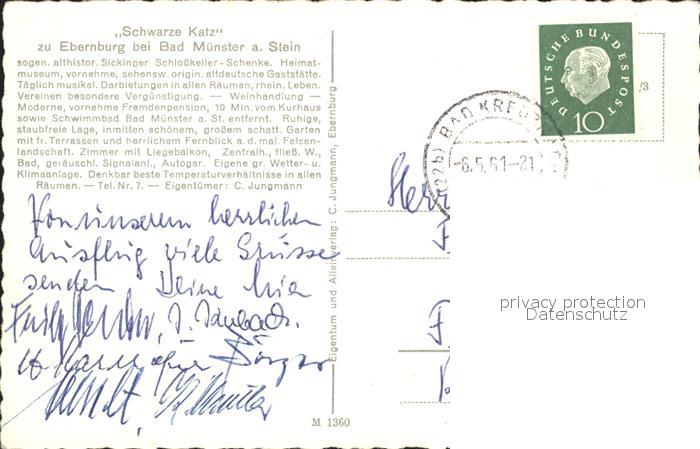 „Schwarze Katz“
zu Ebernburg bei Bad Münster a. Stein
sogen. althistor. Sickinger Schloßkeller-Schenke. Heimat-
museum, vornehme, sehensw. origin. altdeutsche Gaststätte.
Täglich musikal. Darbietungen in allen Räumen, rhein. Leben.
Vereinen besondere Vergünstigung. — Weinhandlung —
Moderne, vornehme Fremdenpension, 10 Min. vom Kurhaus
sowie Schwimmbad Bad Münster a. St. entfernt. Ruhige,
staubfreie Lage, inmitten schönem, großem schatt. Garten
mit fr. Terrassen und herrlichem Fernblick a. d. mal. Felsen-
landschaft. Zimmer mit Liegebalkon, Zentralh., fließ. W.,
Bad, geräuschl. Signalanl., Autogar. Eigene gr. Wetter- u.
Klimaanlage. Denkbar beste Temperaturverhältnisse in allen
Räumen. — Tel. Nr. 7. — Eigentümer: C. Jungmann
Von unserem herrlichen
Ausflug viele Grüsse
senden Deine
Eigentum und Alleinverlag: C. Jungmann, Ebernburg
M 1360
DEUTSCHE BUNDESPOST
10
/3
(22b) BAD KREUZ
-6.5.61-21
Herr
privacy protection
Datenschutz